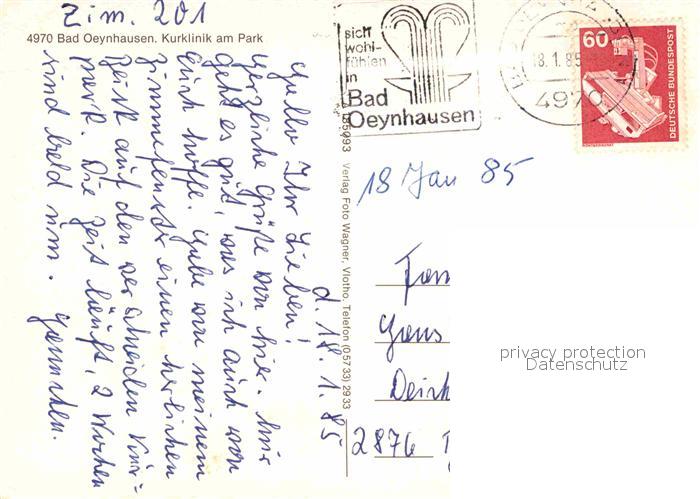 Zim. 201
4970 Bad Oeynhausen. Kurklinik am Park
d. 18.1.85
Hallo Ihr Lieben!
Herzliche Grüße von hier. Mir
geht es gut, was ich auch von
Euch hoffe. Habe von meinem
Zimmerfenster einen herlichen
Blick auf den verschneiten Kur=
park. Die Zeit läuft, 2 Wochen
sind bald rum.
Verlag Foto Wagner, Vlotho, Telefon (05733) 2933
sich
wohl-
fühlen
in
Bad
Oeynhausen
4970
60
DEUTSCHE BUNDESPOST
18 Jan 85
Fam
Hans
Deich
2876
privacy protection
Datenschutz